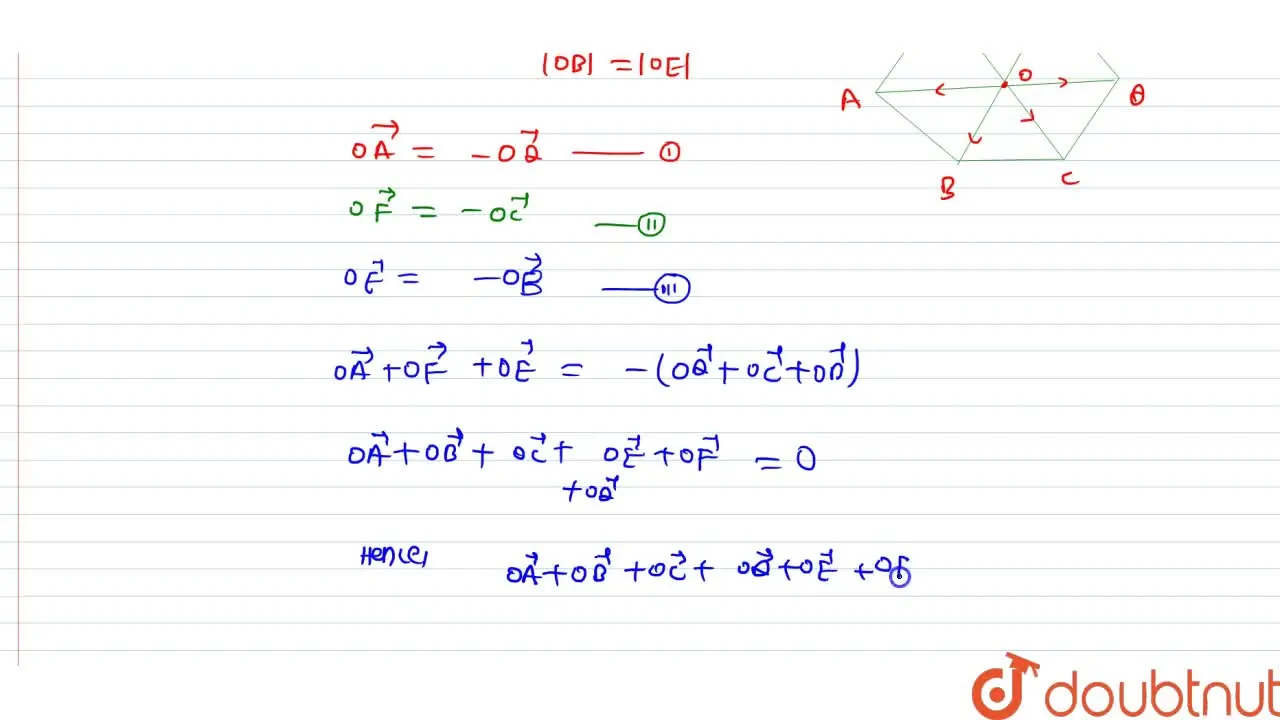 |OB| = |OE|
O
A
D
B
C
OA⃗ = -OD⃗ —— (I)
OF⃗ = -OC⃗ —— (II)
OE⃗ = -OB⃗ —— (III)
OA⃗ + OF⃗ + OE⃗ = -(OD⃗ + OC⃗ + OB⃗)
OA⃗ + OB⃗ + OC⃗ + OE⃗ + OF⃗ = 0
+ OD⃗
Hence, OA⃗ + OB⃗ + OC⃗ + OD⃗ + OE⃗ + OF
doubtnut